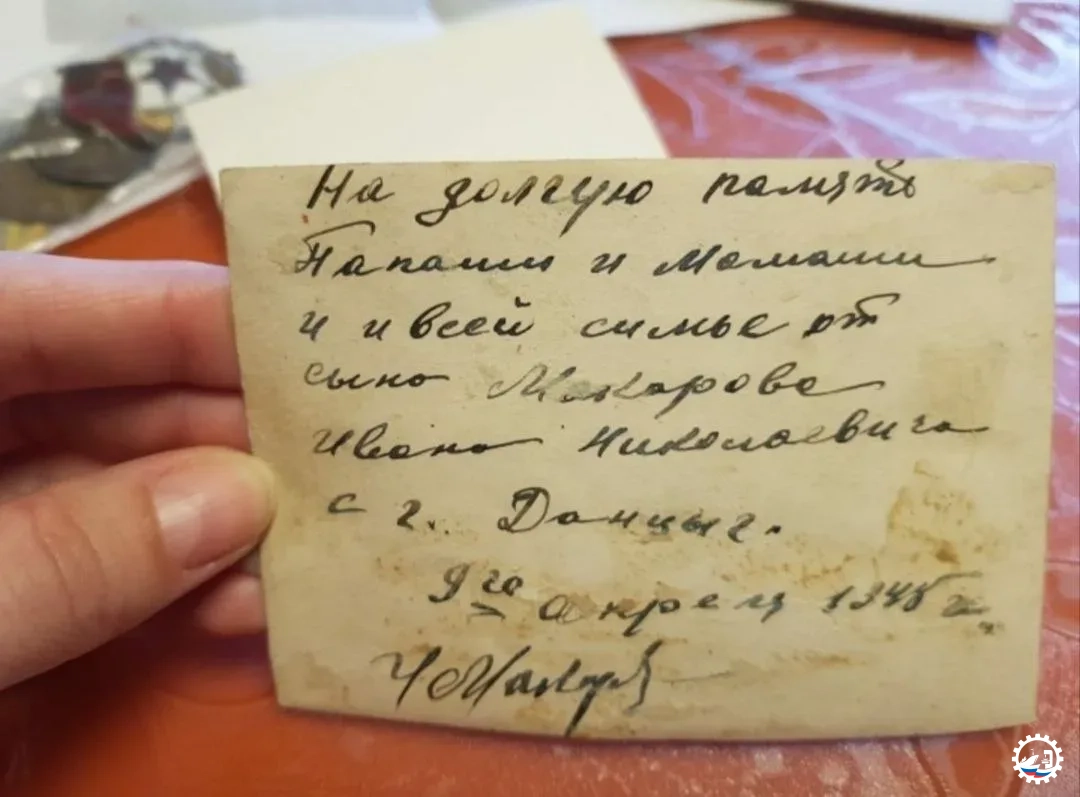 На долгую память
Папаши и Мамаши
и и всей симье от
сына Макарова
Ивана Николаевича
с г. Данцыг.
9го апреля 1945 г.